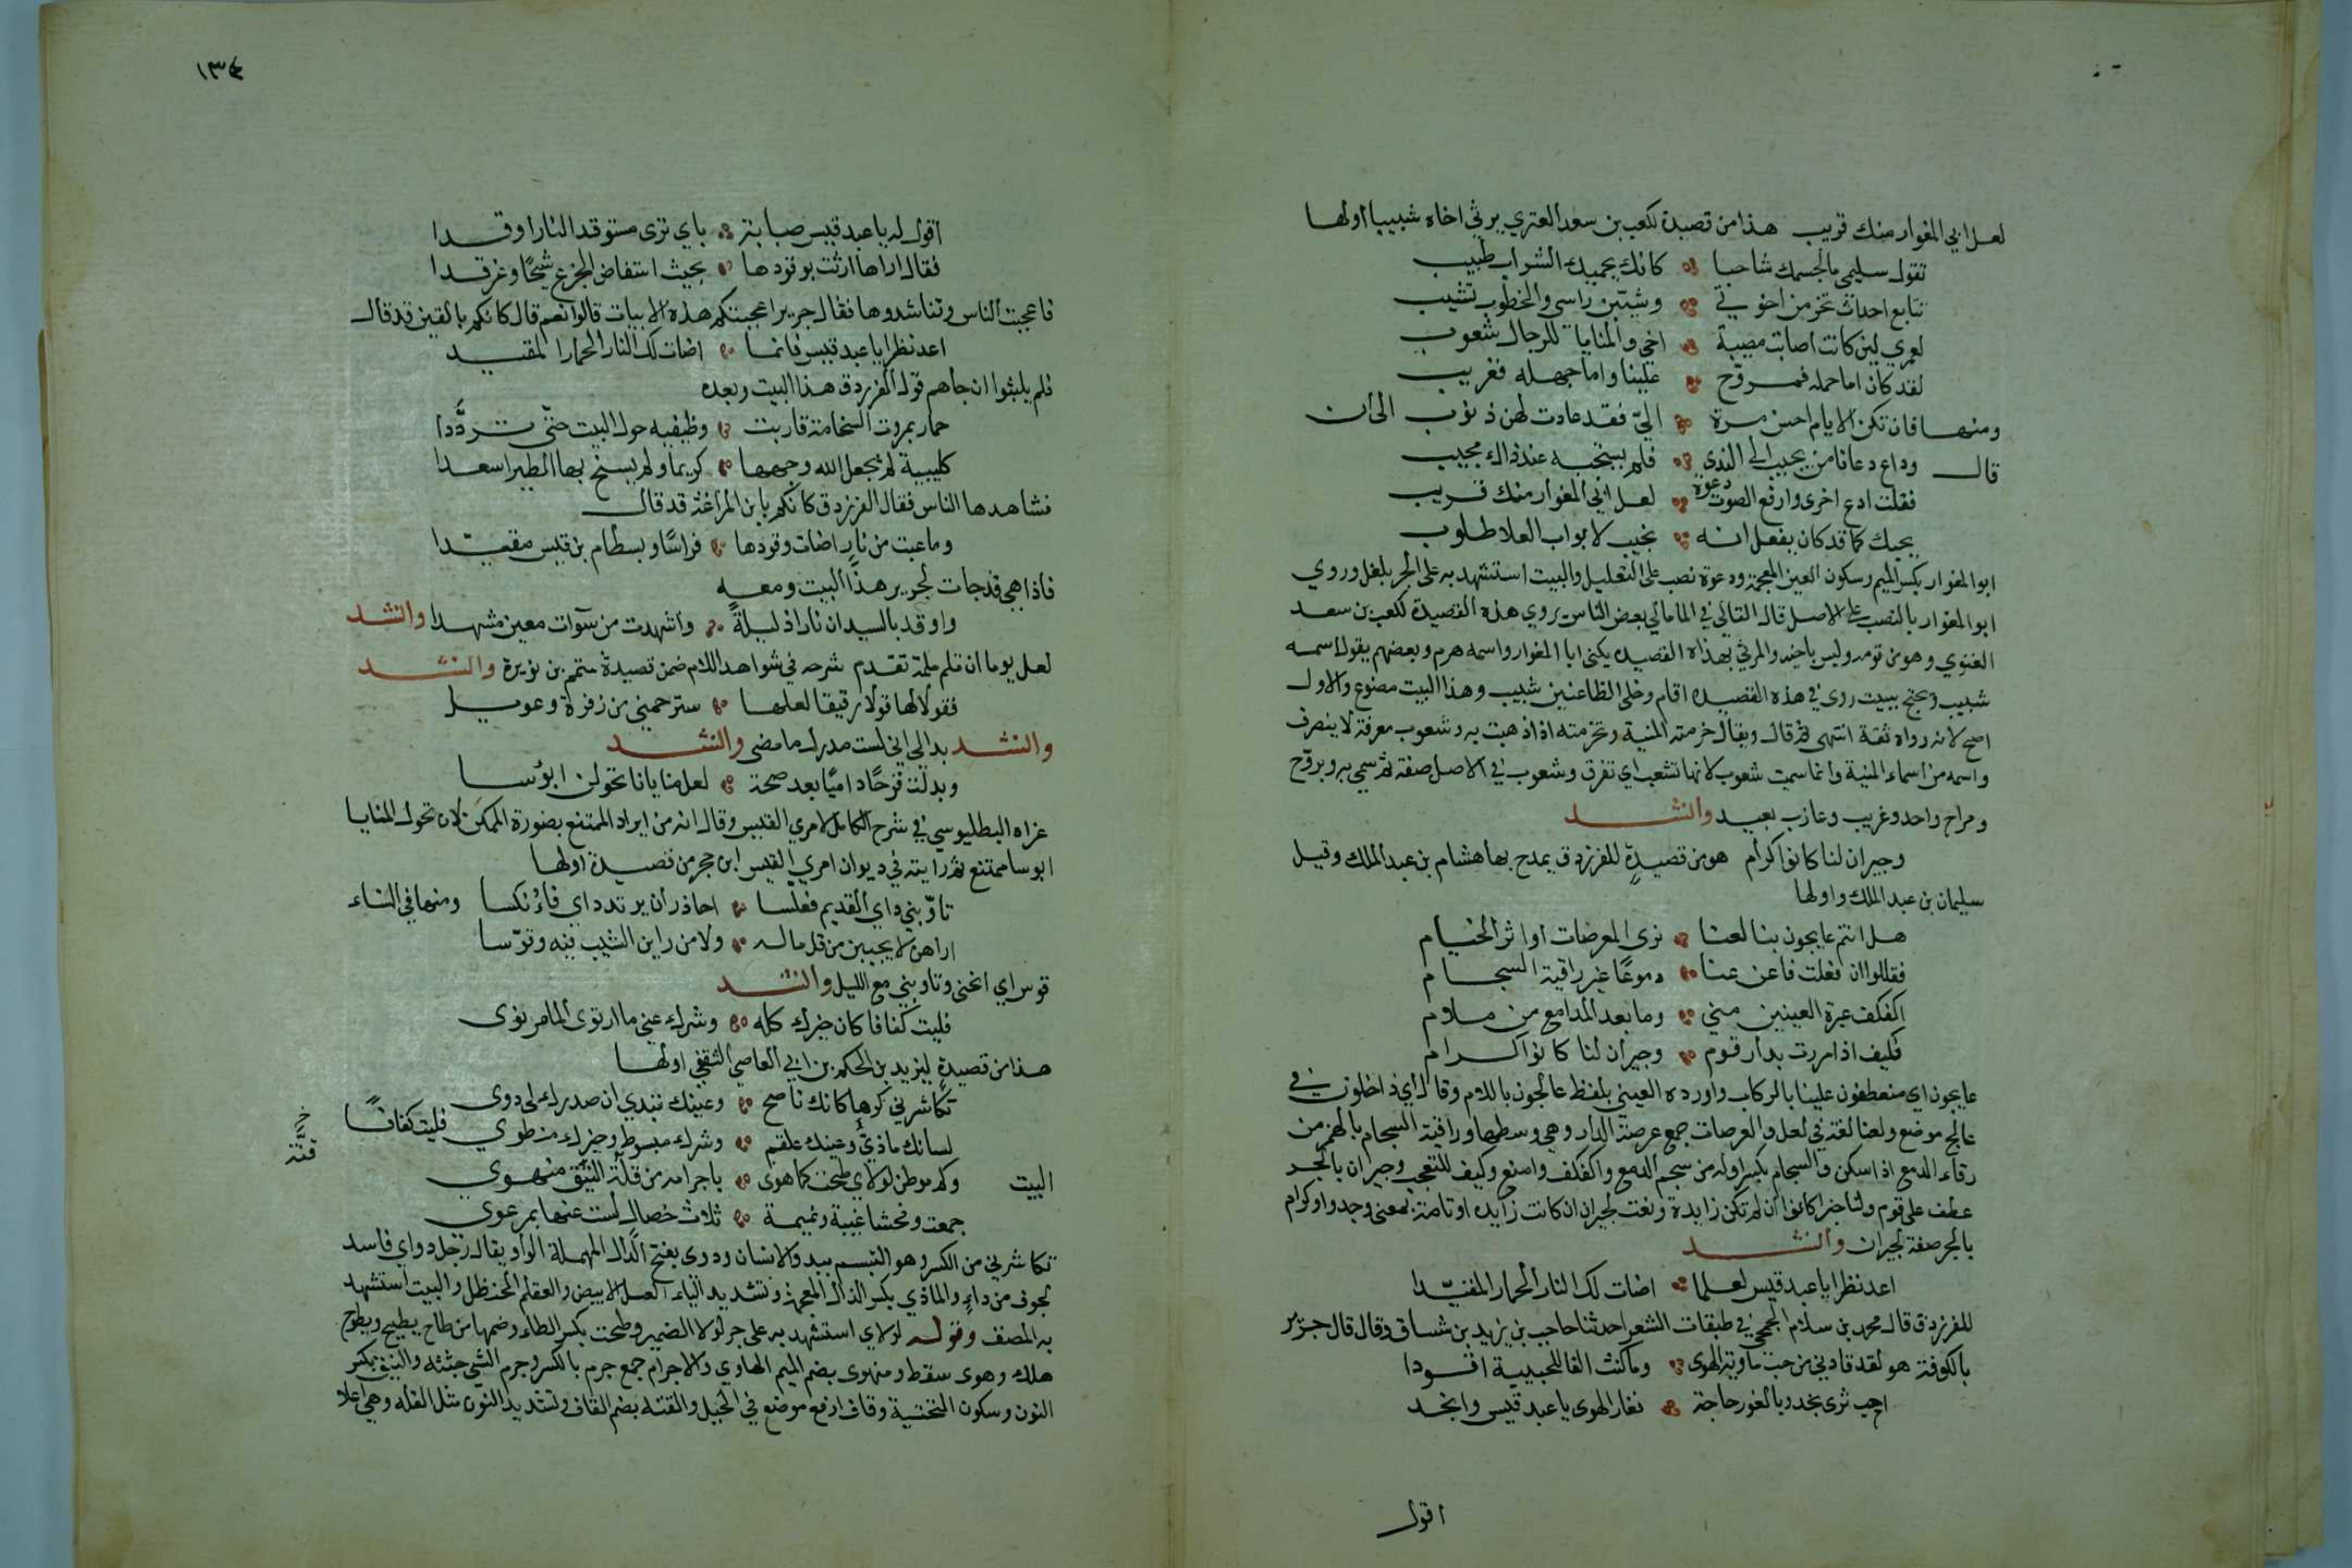 لعل ابي المغوار منك قريب هذا من قصيدة لكعب بن سعد العتري يرثي اخاه شبيبا اولها
تقول سليمى ما لجسمك شاحبا كانك يحميك الشراب طبيب
تتابع احداث تخرمن اخوتي وشيبن راسي والخطوب تشيب
لعمري لين كانت اصابت مصيبة اخي والمنايا للرجال شعوب
لقد كان اما حمله فمروّح علينا واما جهله فغريب
ومنها فان تكن الايام احسن مرة اليّ فقد عادت لهن ذنوب الى ان
قال وداع دعا نا من يجيب الى الندي فلم يستجبه عند ذاك مجيب
فقلت ادع اخرى وارفع الصوت دعوة لعل ابي المغوار منك قريب
يجبك كما قد كان يفعل انه نجيب لابواب العلا طلوب
ابو المغوار بكسر الميم وسكون الغين المعجمة ودعوة نصب على التعليل والبيت استشهد به على الجر بلعل وروي
ابو المغوار بالنصب على الاصل قال القالي في اماليه بعض الناس يروي هذه القصيدة لكعب بن سعد
الغنوي وهو من قومه وليس باخيه والمرثي بهذه القصيده يكنى ابا المغوار واسمه هرم وبعضهم يقول اسمه
شبيب ويحتج ببيت روي في هذه القصيده اقام وخلى الظاعنين شبيب وهذا البيت مصنوع والاول
اصح لانه رواه ثقة انتهى ثم قال ويقال خرمته المنية وتخرمته اذا ذهبت به وشعوب معرفة لا ينصرف
واسمه من اسماء المنية وانما سميت شعوب لانها تشعب اي تفرق وشعوب في الاصل صفة ثم سمي به ويروّح
ومراح واحد وغريب وعازب بعيد وانشد
وجيران لنا كانوا كرام هو من قصيدةٍ للفرزدق يمدح بها هشام بن عبد الملك وقيل
سليمان بن عبد الملك واولها
هل انتم عايجون بنا لعنا نرى العرصات او اثر الخيام
فقالوا ان فعلت فاغن عنا دموعًا غير راقية السجام
اكفكف عبرة العينين مني وما بعد المدامع من ملام
فكيف اذا مررت بدار قوم وجيران لنا كانوا كرام
عايجون اي منعطفون علينا بالركاب واورده العيني بلفظ عالجون باللام وقال اي داخلون في
عالج موضع ولعنا لغة في لعل والعرصات جمع عرصة الدار وهي وسطها وراقية السجام بالهمز من
رقاء الدمع اذا سكن والسجام بكسر اوله من سجم الدمع واكفكف واصنع وكيف للتعجب وجيران بالجر
عطف على قوم ولنا خبر كانوا ان لم تكن زايدة ونعت لجيران ان كانت زايده او تامة بمعنى وجدوا وكرام
بالجر صفة لجيران وانشد
اعد نظرا يا عبد قيس لعلما اضات لك النار الحمار المقيّدا
للفرزدق قال محمد بن سلام الجمحي في طبقات الشعرا حدثنا حاجب بن يزيد بن شساق وقال قال جرير
بالكوفة هو لقد قادني من حب ماوية الهوى وما كنت القا للحبيبة اقودا
احب ثرى نجد وبالغور حاجة نغار الهوى يا عبد قيس وانجد
اقول
١٣٤
اقول له يا عبد قيس صبابة باي ترى مستوقد النار اوقدا
فقال اراها ارثت بوقودها بحيث استفاض الجزع شيحًا وغرقدا
فاعجبت الناس وتناشدوها فقال جرير اعجبتكم هذه الابيات قالوا نعم قال كانكم بالقين قد قال
اعد نظرا يا عبد قيس فانما اضات لك النار الحمار المقيد
فلم يلبثوا ان جاهم قول الفرزدق هذا البيت وبعده
حمار بمروت السخامة قاربت وظيفيه حول البيت حتّى تردّدا
كليبية لم يجعل الله وجهها كريما ولم يسنح بها الطير اسعدا
فشاهدها الناس فقال الفرزدق كانكم بابن المراغة قد قال
وما عبت من نارٍ اضات وقودها فراسًا وبسطام بن قيس مقيّدا
فاذا هي قد جات لجرير هذا البيت ومعه
واوقد بالسيدان نارا ذليلةً واشهدت من سوآت معين مشهدا وانشد
لعل يوما ان تلم ملمة تقدم شرحه في شواهد اللام ضمن قصيدة متمم بن نويرة وانشد
فقولا لها قولا رقيقا لعلها سترحمني من زفرة وعويل
وانشد بدا لي اني لست مدرك ما مضى وانشد
وبدلت قرحًا داميًا بعد صحة لعل منايانا تحولن ابؤسا
عزاه البطليوسي في شرح الكامل لامري القيس وقال انه من ايراد الممتنع بصورة الممكن لان تحول المنايا
ابوسا ممتنع ثم رايته في ديوان امري القيس ابن حجر من قصيدة اولها
تاوّبني داي القديم فغلّسا احاذر أن يرتد داي فاُنكسا ومنها في النساء
اراهن لا يحببن من قل ماله ولا من راين الشيب فيه وقوّسا
قوس اي انحنى وتاوبني مع الليل وانشد
فليت كفافا كان خيرك كله وشرك عني ما ارتوى الما مرتوى
هذا من قصيدةٍ ليزيد بن الحكم بن ابي العاصي الثقفي اولها
تكاشرني كرها كانك ناصح وعينك تبدي ان صدرك لي دوى
لسانك ماذيّ وعينك علقم وشرك مبسوط وخيرك منطوي فليت كفافًا
البيت وكم موطن لولاي طحت كما هوى باجرامه من قلّة النيق منهوي
خ
قنّة
جمعت وفحشا غيبة ونميمة ثلاث خصالٍ لست عنها بمرعوي
تكاشرني من الكسر وهو التبسم يبدو الاسنان ودوى بفتح الدال المهملة الواو يقال رجل دو اي فاسد
لجوف من داءٍ والماذي بكسر الذال المعجمة وتشديد الياء العسل الابيض والعلقم الحنظل والبيت استشهد
به المصنف وقوله لولاي استشهد به على جر لولا الضمير وطحت بكسر الطاء وضمها من طاح يطيح ويطوح
هلك وهوى سقط ومنهوى بضم الميم الهاوي والاجرام جمع جرم بالكسر وجرم الشي جثته والنيق بكسر
النون وسكون التحتية وقاف ارفع موضع في الجبل والقنة بضم القاف وتشديد النون مثل القله وهي اعلا